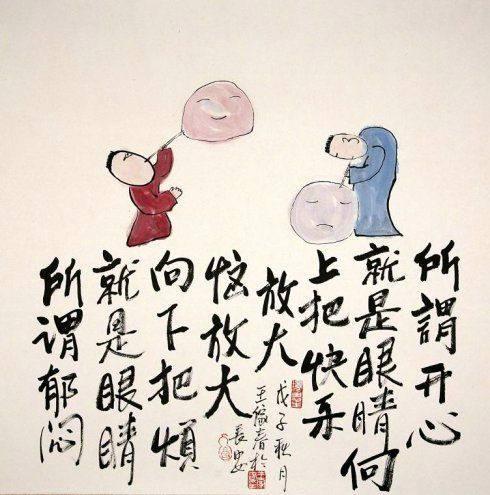 所謂开心
就是眼睛向
上把快乐
放大
所谓郁闷
就是眼睛
向下把煩
恼放大
戊子秋月
王於
長安